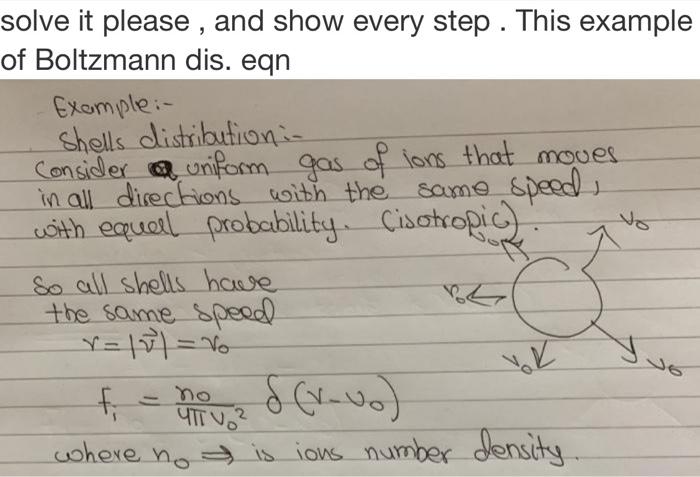 solve it please , and show every step . This example
of Boltzmann dis. eqn
Example:-
Shells distribution:-
Consider a uniform gas of ions that moves
in all directions with the same speed,
with equal probability. (isotropic).
v₀
v₀
So all shells have
v₀
the same speed
v = |v⃗| = v₀
v₀
v₀
fᵢ = n₀/4πv₀² δ(v-v₀)
where n₀ ⇒ is ions number density.